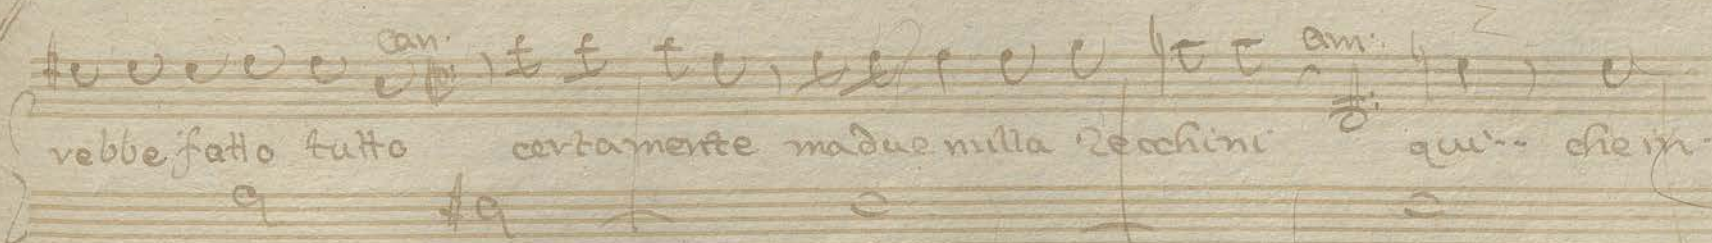 can: am:
rebbe fatto tutto certamente ma due milla Zecchini qui-- che in-